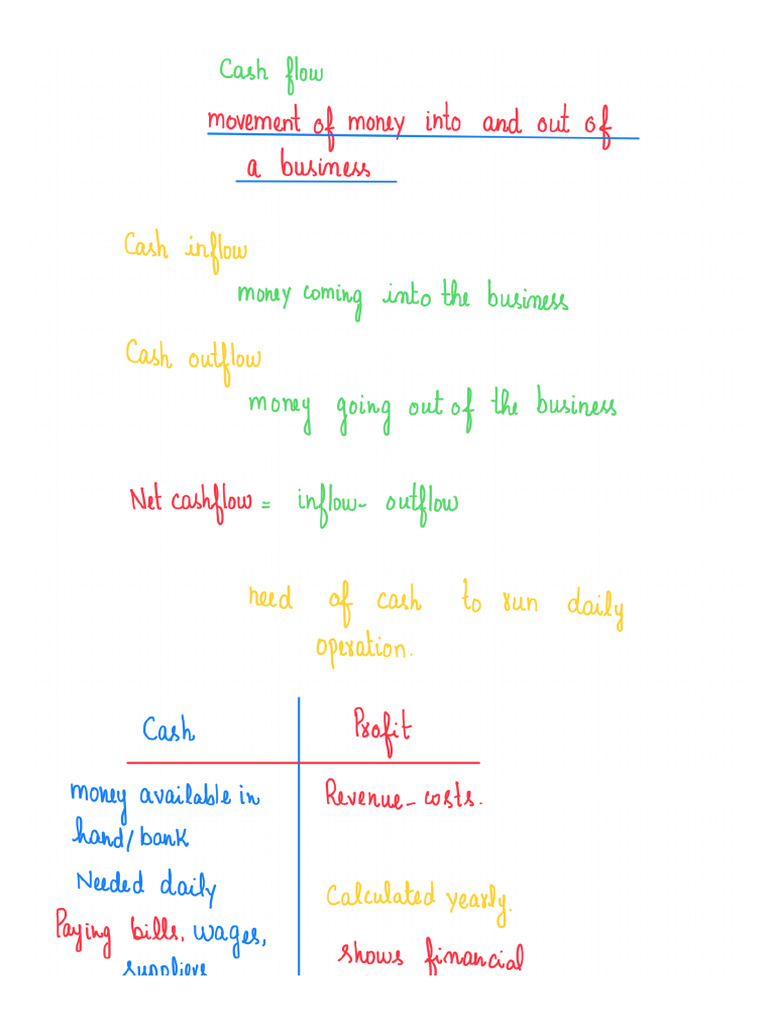 Cash flow
movement of money into and out of
a business
Cash inflow
money coming into the business
Cash outflow
money going out of the business
Net cashflow = inflow - outflow
need of cash to run daily
operation.
Cash
Profit
money available in
hand/bank
Revenue - costs.
Needed daily
Calculated yearly.
Paying bills, wages,
suppliers
shows financial